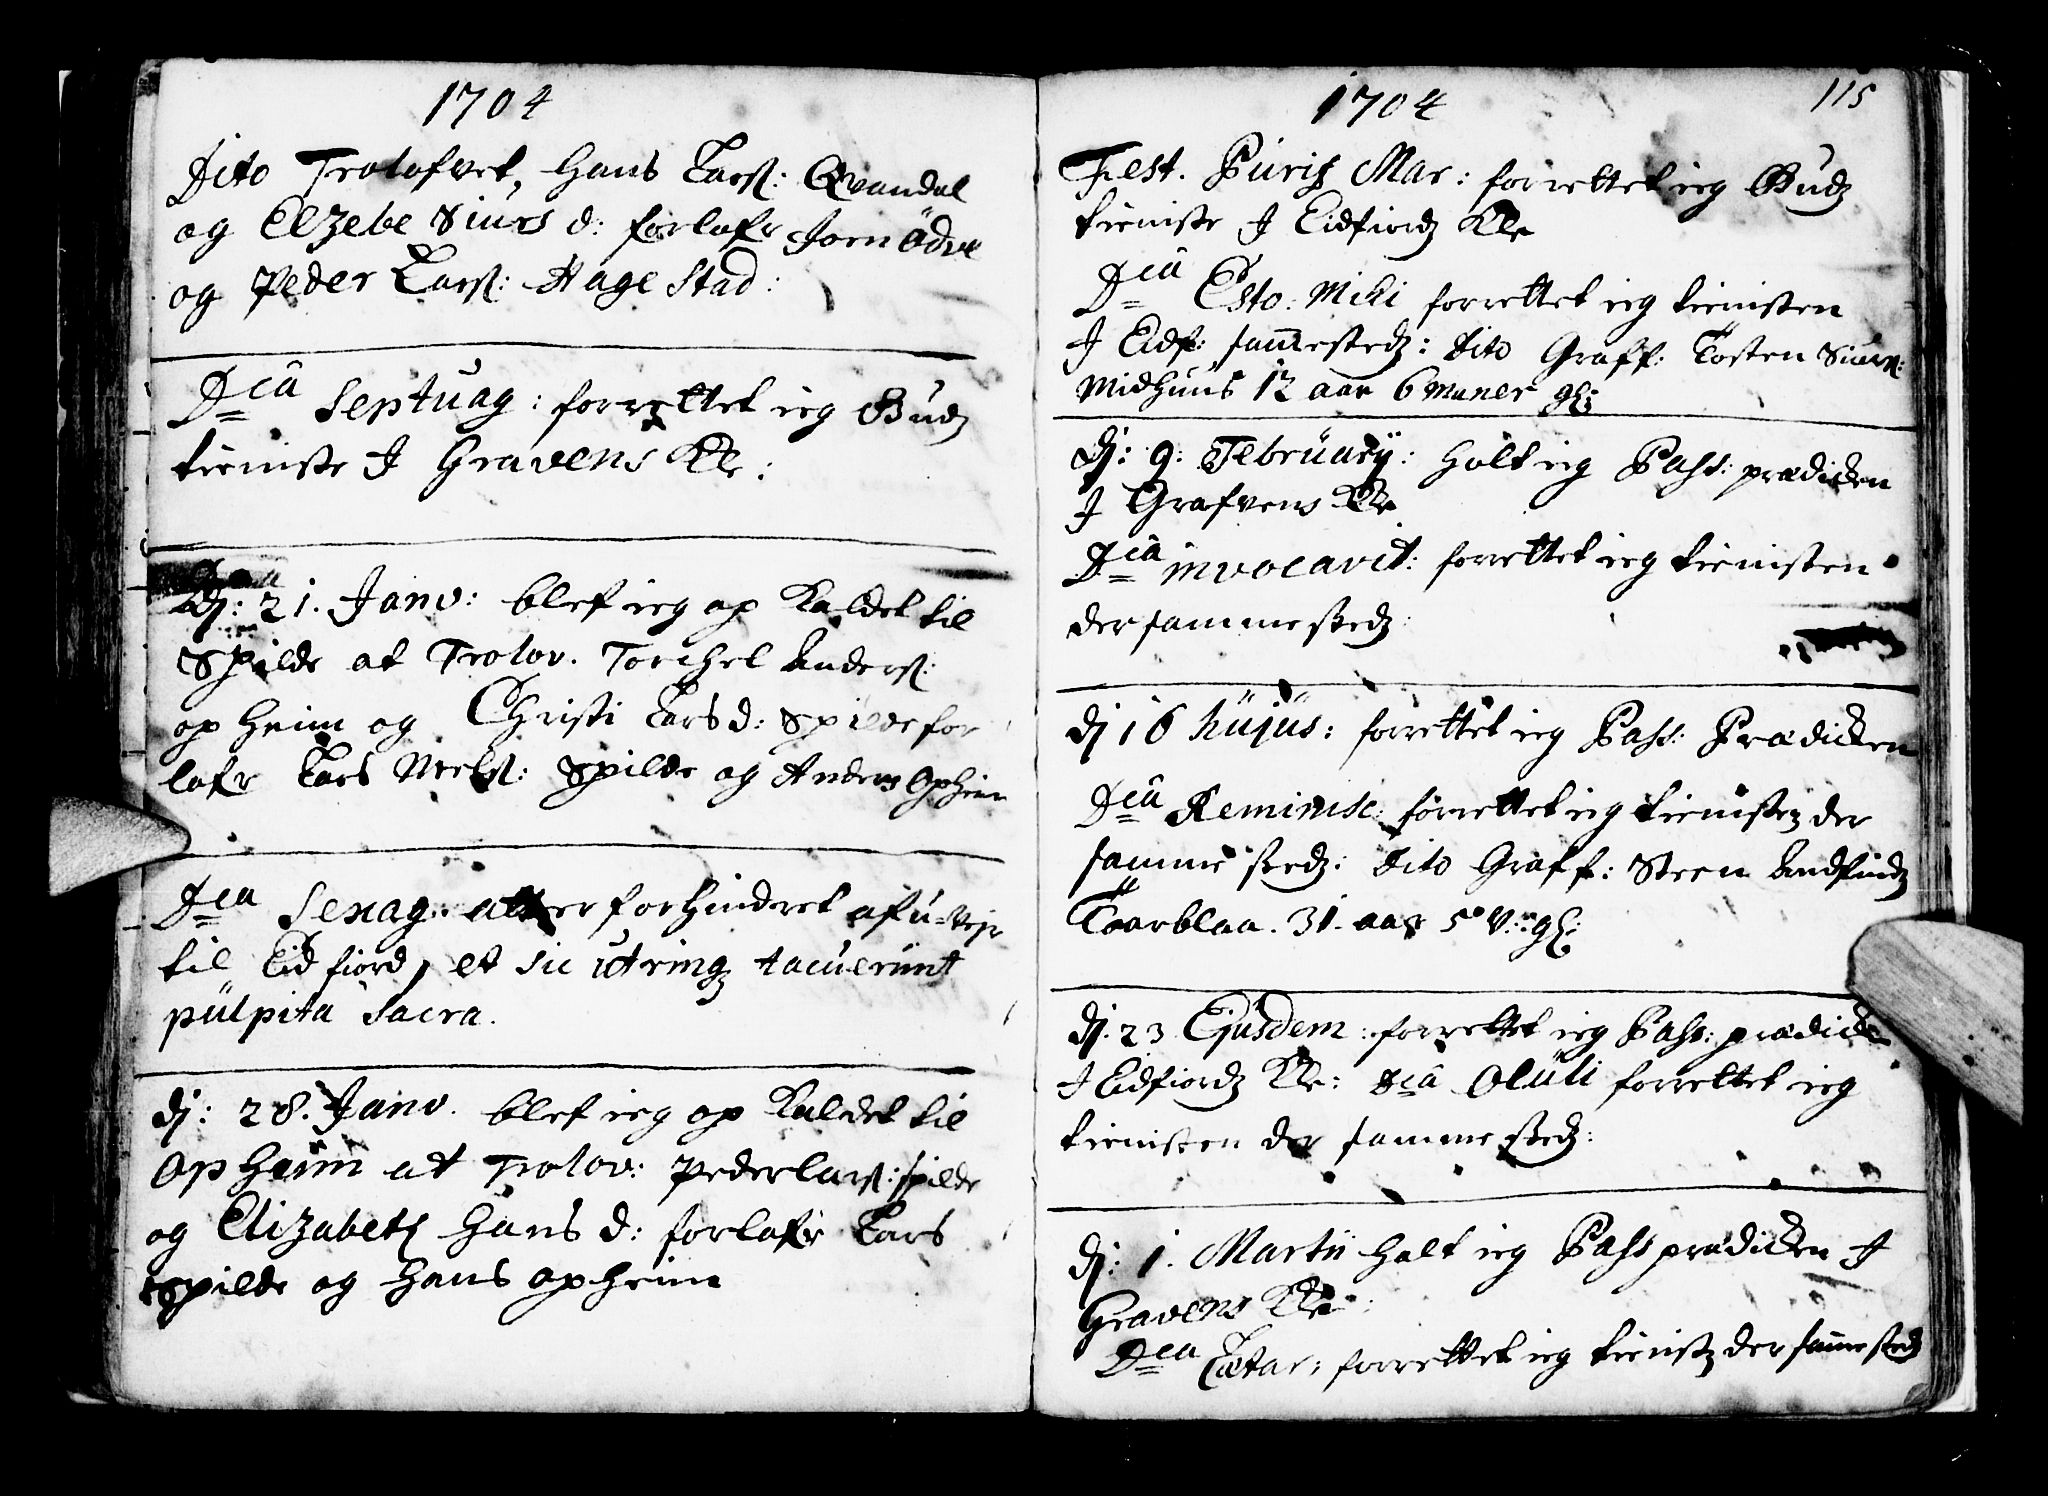 1704
Dito Trolofvet, Hans Larsß: Qvandal
og Elzebe Siurs d: forlofr Joen Ödve
og Peder Larsß: Hage Stad:
Dca Septuag: forrettet ieg Gudz
tieniste J Gravens Kk:
Dj: 21. Janv: blef ieg op kaldet til
Spilde at Trolov. Torchel Andersß:
op heim og Christi Lars d: Spilde for
lofr Lars Nielsß: Spilde og Anders Opheim
Dca Sexag: atter forhindret af u-vejr
til Eidfiord, et sic utrinqz tacuerünt
pülpita Sacra.
dj: 28. Janv. blef ieg op kaldet til
Opheim at Trolov: Peder Larsß: Spilde
og Elizabeth Hans d: forlofr Lars
Spilde og Hans opheim
1704
115
Fest. Purif Mar: forrettet ieg Gudz
tieniste J Eidfiordz Kk
Dca Esto: Mihi forrettet ieg tienisten
J Eidf: sammestedz: Dito Graff: Tosten Siursß:
Midhuus 12 aar 6 maner gl:
dj: 9: Februarÿ: holt ieg Pass: prædicken
J Grafvens Kk
Dca invocavit: forrettet ieg tienisten
der sammestedz:
dj 16 hujus: forrettet ieg Pass: Prædicken
Dca Reminisc: forrettet ieg tienisten der
samme stedz: Dito Graff: Steen Andfindz
Taarblaa. 31. aar 5 V: gl:
dj. 23 Ejusdem: forrettet ieg Pass: prædicken
J Eidfiordz Kk: Dca Oculi forrettet ieg
tienisten der samme stedz:
dj: 1. Martii holt ieg Pass prædicken J
Gravens Kk:
Dca Lætar: forrettet ieg tienistz der samme stedz